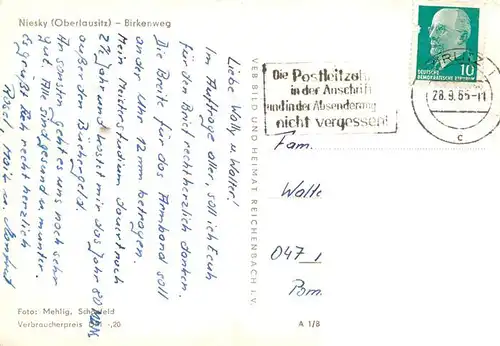 Niesky (Oberlausitz) – Birkenweg
Liebe Wally u. Walter!
Im Auftrage aller, soll ich Euch
für den Brief recht herzlich danken.
Die Breite für das Armband soll
an der Uhr 12 mm betragen.
Mein Meisterstudium dauert noch
2½ Jahr und kostet mir das Jahr 80 MDN
außer den Büchergeld.
An sonsten geht es uns noch sehr
gut. Alle sind gesund u. munter.
Es grüßt Euch recht herzlich
Maik u. Manfred
Foto: Mehlig, Schönfeld
Verbraucherpreis -,20
VEB BILD UND HEIMAT REICHENBACH I. V.
A 1/B
Die Postleitzahl
in der Anschrift
und in der Absenderangabe
nicht vergessen!
DEUTSCHE
DEMOKRATISCHE REPUBLIK
10
28.9.65-11
c
Fam.
Walte
047